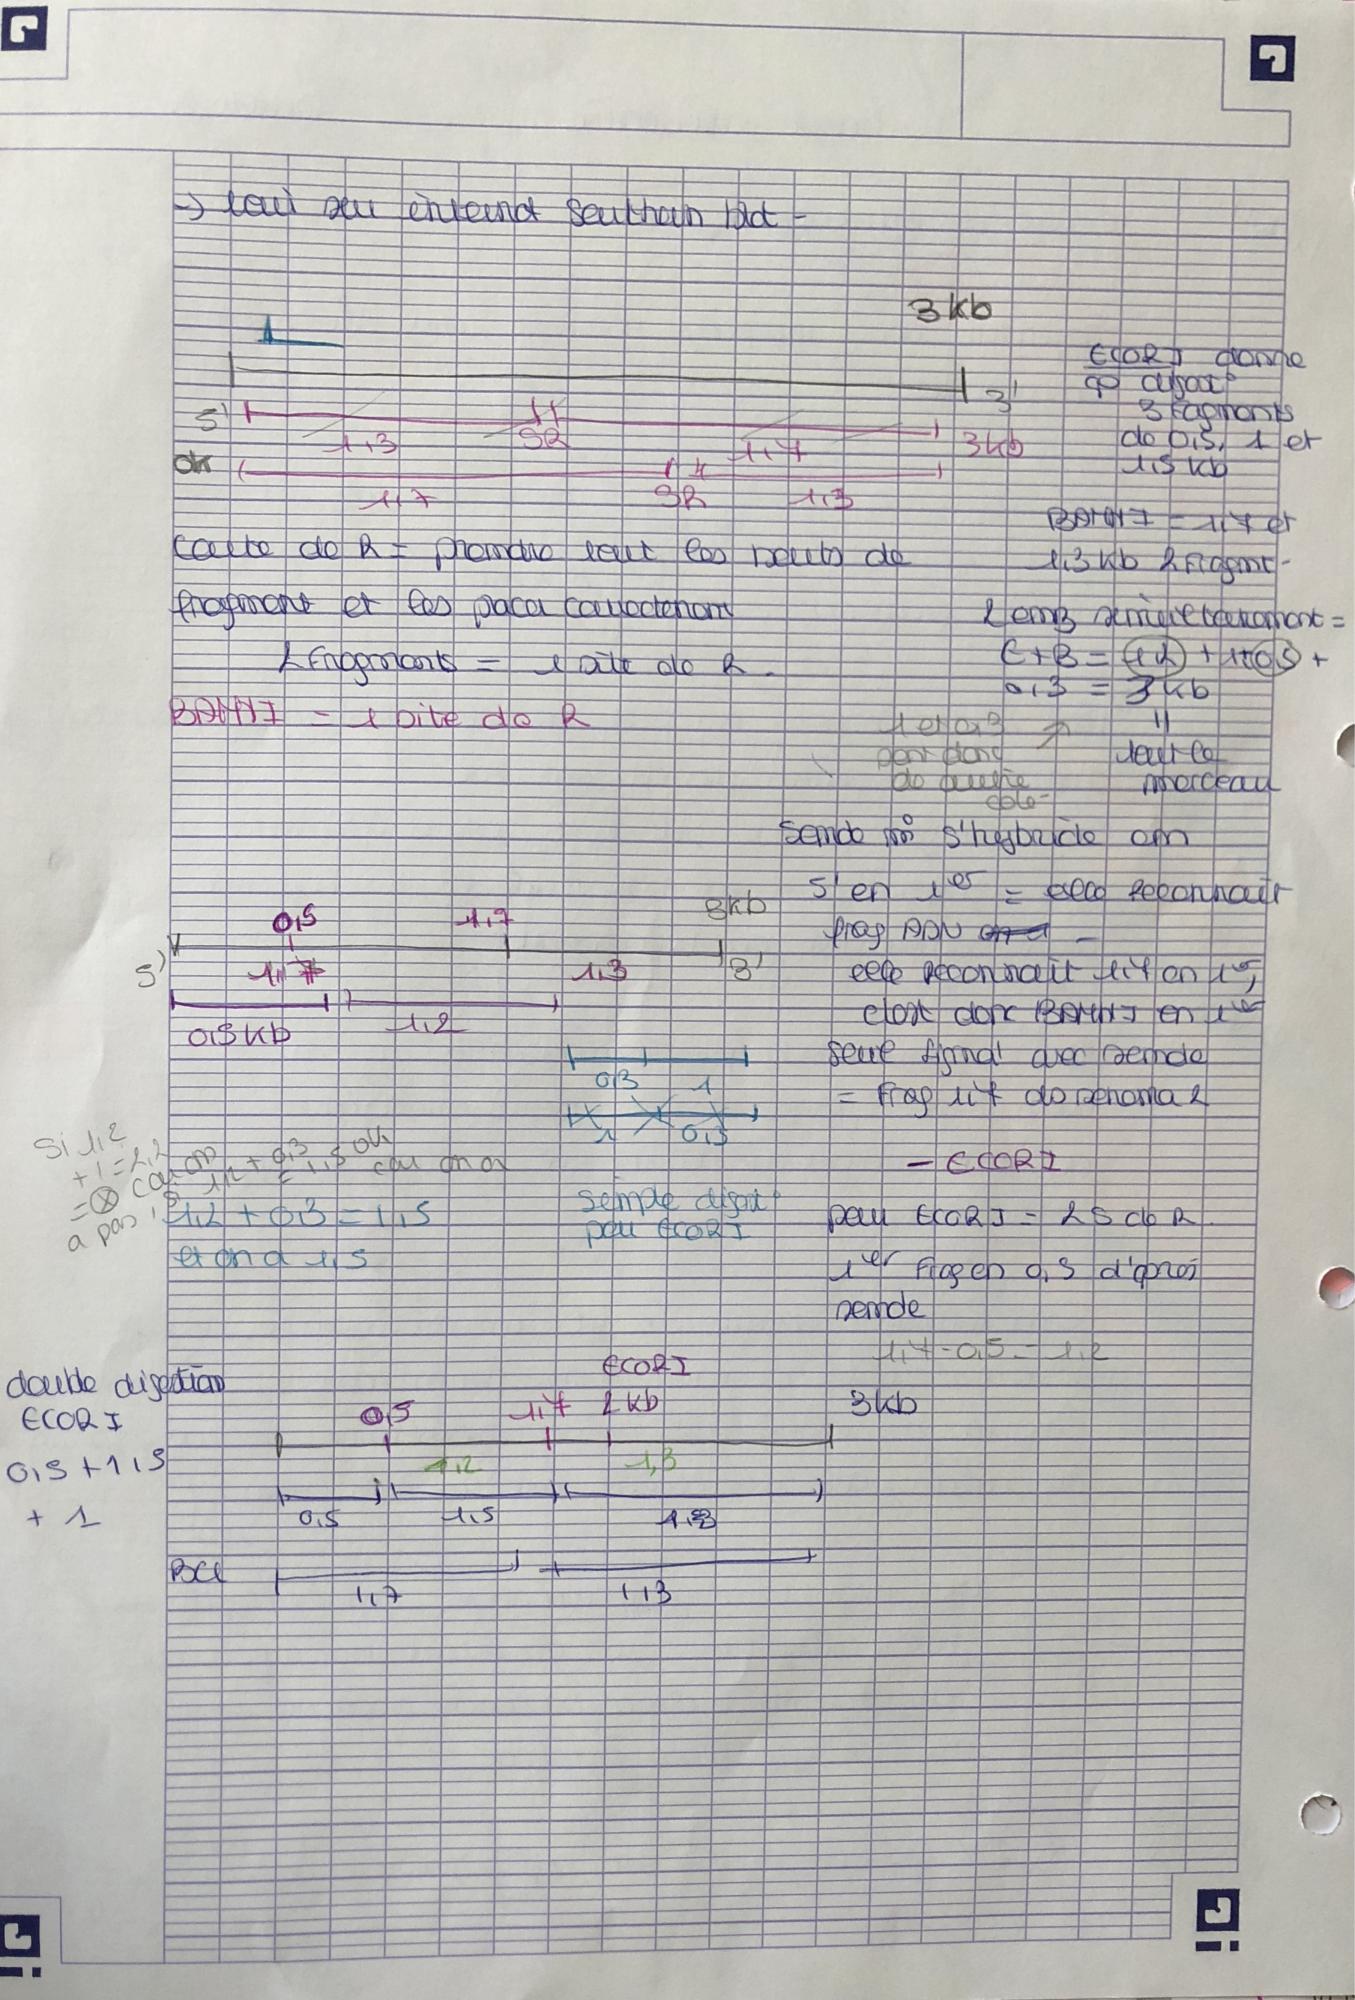 →
3 kb
ECORI donne
3 fragments
de 0,5, 1 et
1,5 kb
5' 3'
1,3 SR 1,7 3kb
ok
1,7 SR 1,3
BAMHI = 1,7 et
1,3 kb 2 fragmt-
carte de R = prendre tout les bouts de
fragment et les
2 fragments = 1 site de R.
BAMHI = 1 site de R
2 enz
E+B = 1,2 + 1 + 0,5 +
0,3 = 3 kb
1 et 0,3
sont donc
de
cote-
"
tout le
morceau
Sonde s'hybride en
5' en 1er = elle reconnait
frag ADN
elle reconnait 1,7 en 1er,
c'est donc BAMHI en 1er
seul signal avec sonde
= frag 1,7 do
0,5 1,7 3kb
5' 1,7 1,3 3'
0,5 kb 1,2
0,3 1
1 0,3
Si 1,2
+ 1 = 2,2
= car on
a pas
1,2 + 0,3
= 1,5 ok
car on a
1,2 + 0,3 = 1,5
et on a 1,5
simple digst°
par ECORI
- ECORI
par ECORI = 2 S de R.
1er frag en 0,5 d'après
sonde
1,7 - 0,5 = 1,2
double digestion
ECORI
0,5 + 1,5
+ 1
ECORI
0,5 1,7 2 kb 3kb
1,2 1,3
0,5 1,5
1,7 1,3